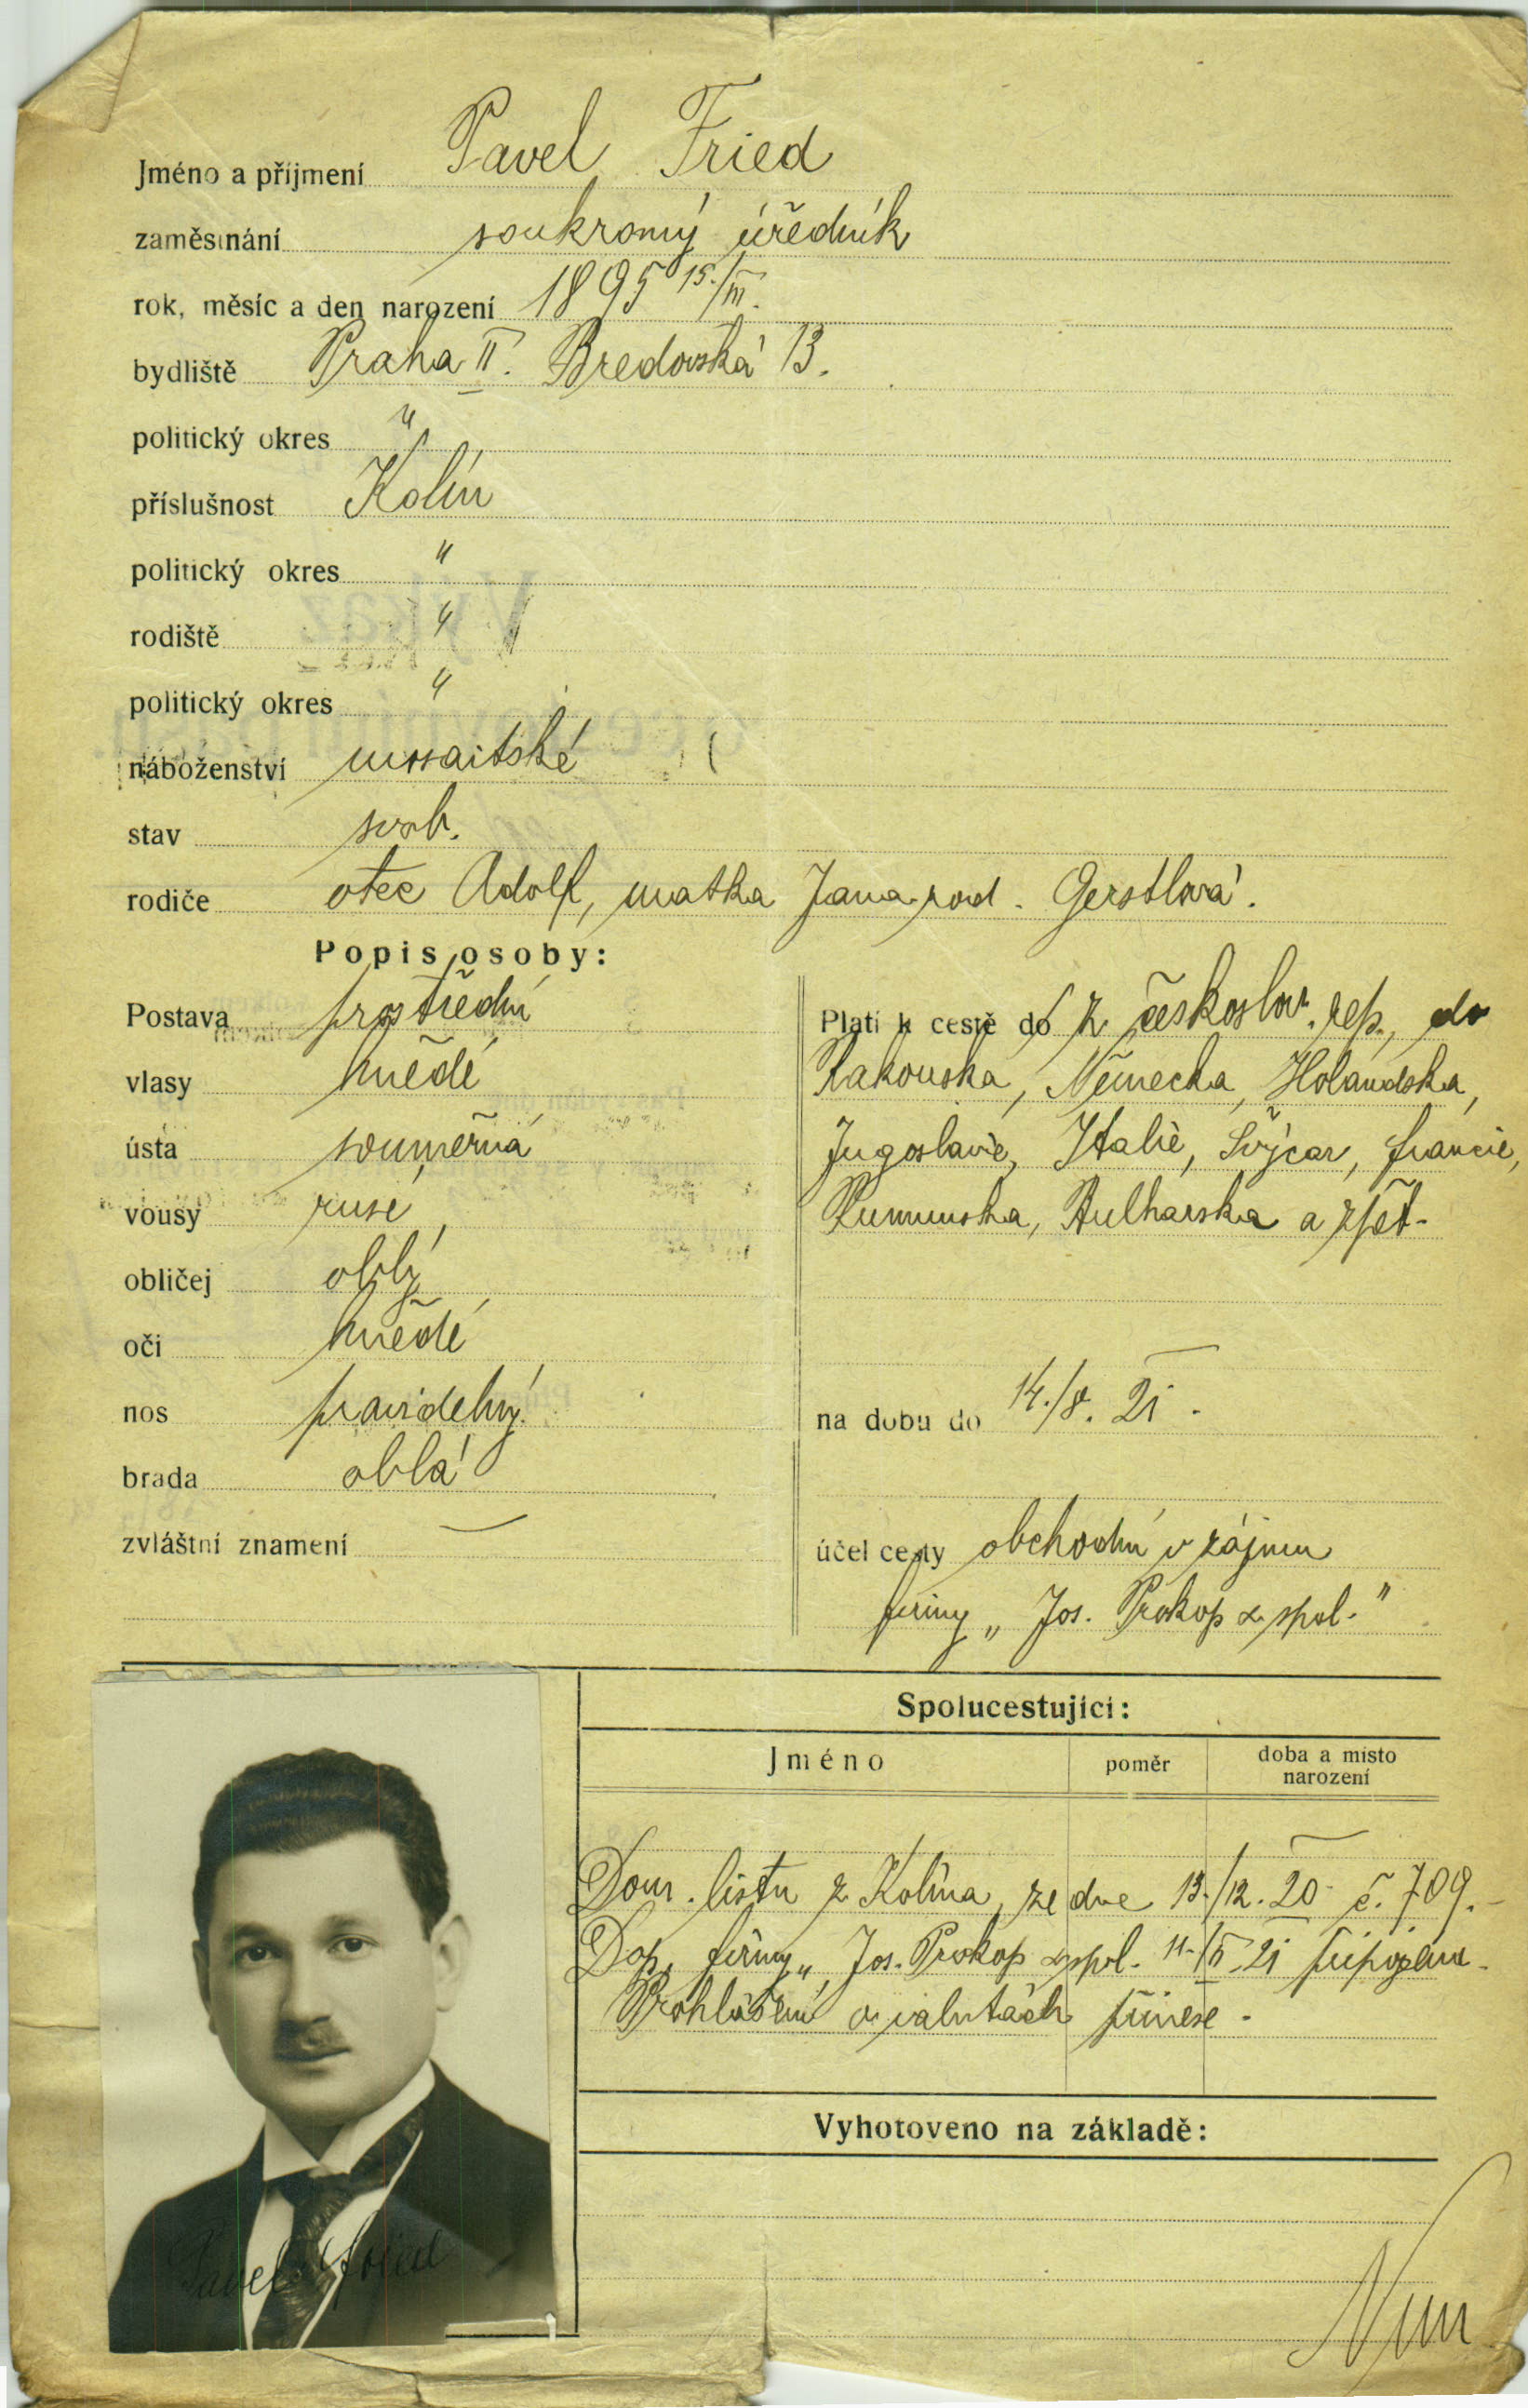 Jméno a příjmení Pavel Fried
zaměstnání soukromý úředník
rok, měsíc a den narození 1895 15./III.
bydliště Praha II. Bredovská 13.
politický okres "
příslušnost Kolín
politický okres "
rodiště "
politický okres "
náboženství mosaitské
stav svob.
rodiče otec Adolf, matka Jana rod. Gerstlová.
Popis osoby:
Postava prostřední
vlasy hnědé
ústa souměrná
vousy rusé
obličej oblý
oči hnědé
nos pravidelný
brada oblá
zvláštní znamení —
Platí k cestě do z českoslov. rep., do
Rakouska, Německa, Holandska,
Jugoslavie, Italie, Švýcar, Francie,
Rumunska, Bulharska a zpět.
na dobu do 14./8. 21.
účel cesty obchodní v zájmu
firmy „Jos. Prokop & spol."
Spolucestující:
Jméno poměr doba a místo
narození
Dom. listu z Kolína, ze dne 13./12. 20 č. 709.
Dop. firmy „Jos. Prokop & spol. 11./II. 21 připojena.
Prohlášení o valutách přinese.
Vyhotoveno na základě:
Pavel Fried